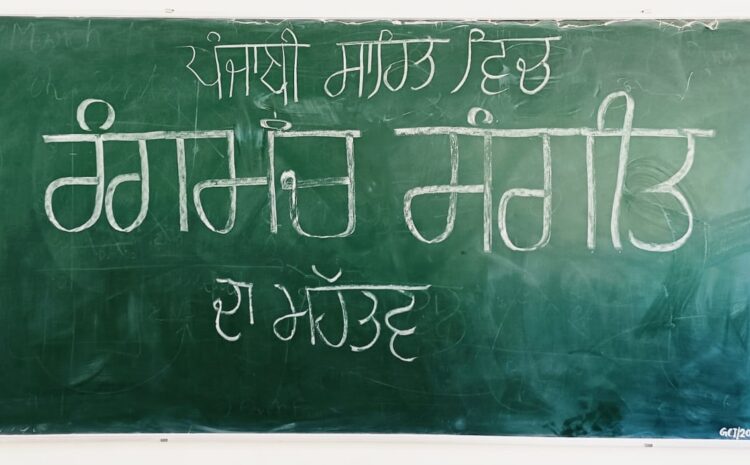 ਪੰਜਾਬੀ ਸਾਹਿਤ ਵਿਚ
ਰੰਗਮੰਚ ਸੰਗੀਤ
ਦਾ ਮਹੱਤਵ